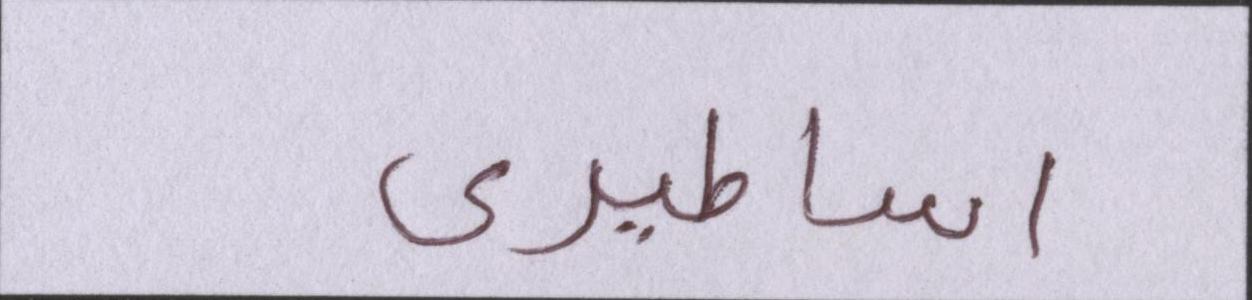 اساطیری